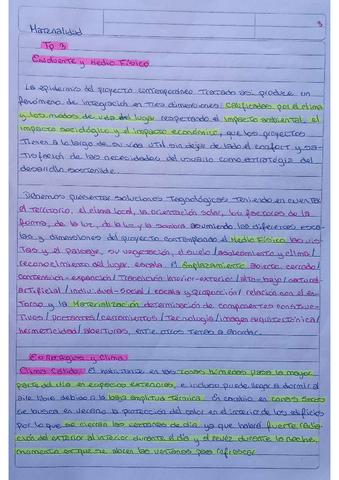 3
Materialidad
Tp 3
Envolvente y Medio Físico
La epidermis del proyecto contemporáneo tratada así, produce un
fenómeno de integración en tres dimensiones: calificadas por el clima
y los modos de vida del lugar respetando el impacto ambiental, el
impacto sociológico y el impacto económico, que los proyectos
tienen a lo largo de su vida util sin dejar de lado el confort y sa-
tisfacción de las necesidades del usuario como estrategia del
desarrollo sostenible.
Debemos presentar soluciones tecnológicas teniendo en cuenta
el territorio, el clima local, la orientación solar, los factores de la
forma, de la luz, de la luz y la sombra asumiendo las diferentes esca-
las y dimensiones del proyecto contemplando el Medio Físico las vis-
tas y el paisaje, su vegetación, el suelo/asoleamiento y clima/
reconocimiento del lugar, escala. El Emplazamiento abierto, cerrado/
contensión-expansión/Transición interior-exterior/alto-bajo/natural-
artificial/individual-social/escala y proporción/relación con el en-
torno y la Materialización determinación de componentes constitu-
tivos/portantes/cerramientos/tecnología/imagen arquitectónica/
hermeticidad/aberturas, entre otros temas a abordar.
Estrategias y Clima
Clima Cálido: El habitante en las zonas húmedas pasa la mayor
parte del día en espacios exteriores, e incluso puede llegar a dormir al
aire libre debido a la baja amplitud térmica. En cambio en zonas secas
se busca en verano la protección del calor en el interior de los edificios
por lo que se cierran las ventanas de día ya que habrá fuerte radia-
ción del exterior al interior durante el día y al revez durante la noche,
momento en que se abren las ventanas para refrescar.